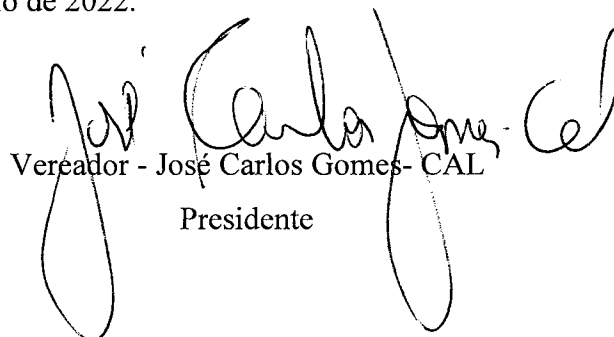 o de 2022.
José Carlos Gomes - Cal
Vereador - José Carlos Gomes- CAL
Presidente